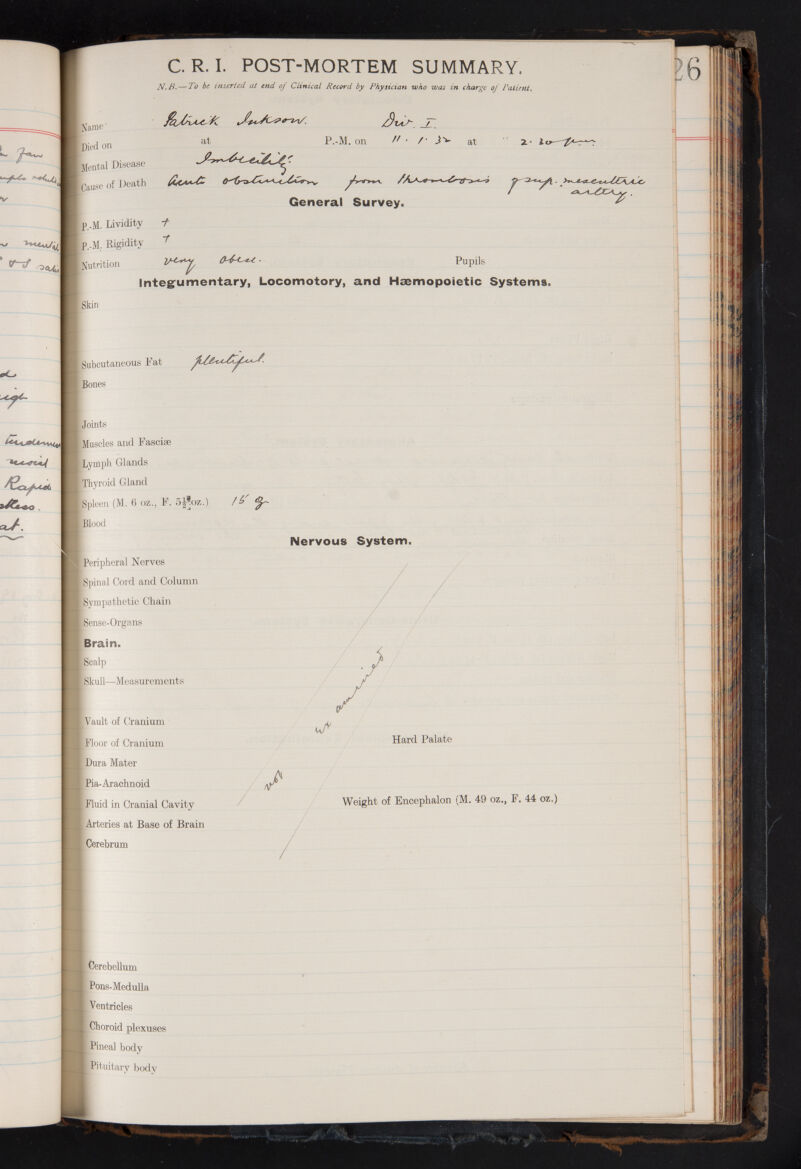 C. R. I. POST-MORTEM SUMMARY.
26
N.B.—To be inserted at end of Clinical Record by Physician who was in charge of Patient.
Name Patrick Inkson. Div. I.
Died on at P.-M. on 11 . 1 . 32 at 2.30 pm
Mental Disease Imbecility.
Cause of Death Acute obstruction from thrombosis of sup. mesenteric
artery.
General Survey.
P.-M. Lividity +
P.-M. Rigidity +
Nutrition very obese. Pupils
Integumentary, Locomotory, and Hæmopoietic Systems.
Skin
Subcutaneous Fat plentiful.
Bones
Joints
Muscles and Fasciæ
Lymph Glands
Thyroid Gland
Spleen (M. 6 oz., F. 5½ oz.) 15
Blood
Nervous System.
Peripheral Nerves
Spinal Cord and Column
Sympathetic Chain
Sense-Organs
Brain.
Scalp
Skull—Measurements
not examined
Vault of Cranium
Floor of Cranium Hard Palate
Dura Mater
Pia-Arachnoid
Fluid in Cranial Cavity Weight of Encephalon (M. 49 oz., F. 44 oz.)
Arteries at Base of Brain
Cerebrum
Cerebellum
Pons-Medulla
Ventricles
Choroid plexuses
Pineal body
Pituitary body
mental
Rapid
at.